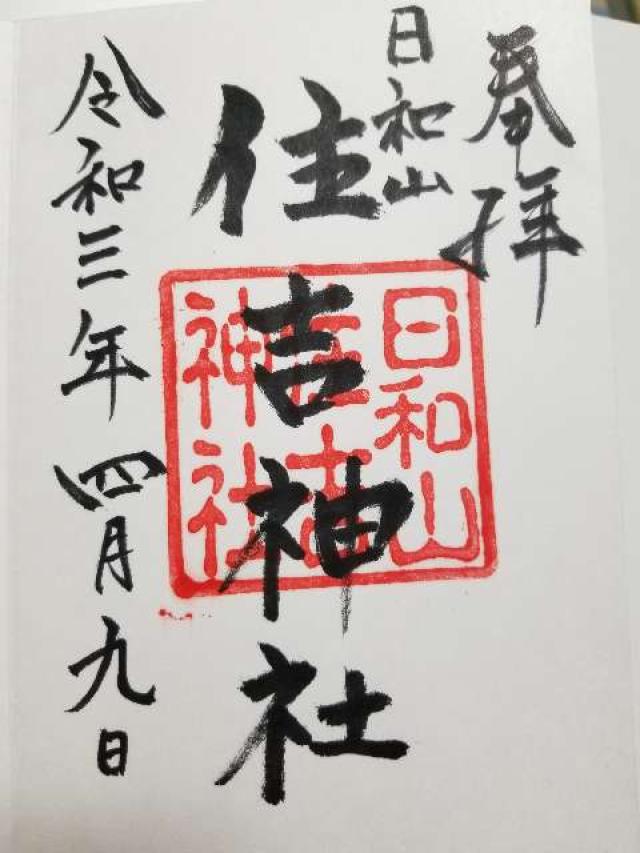 奉拝
日和山
住吉神社
日和山
住吉
神社
令和三年四月九日